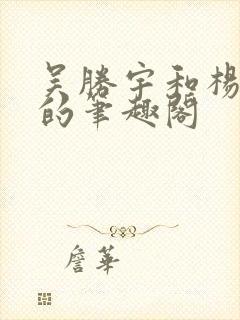 吴勝宇和楊
的筆趣閣
詹華